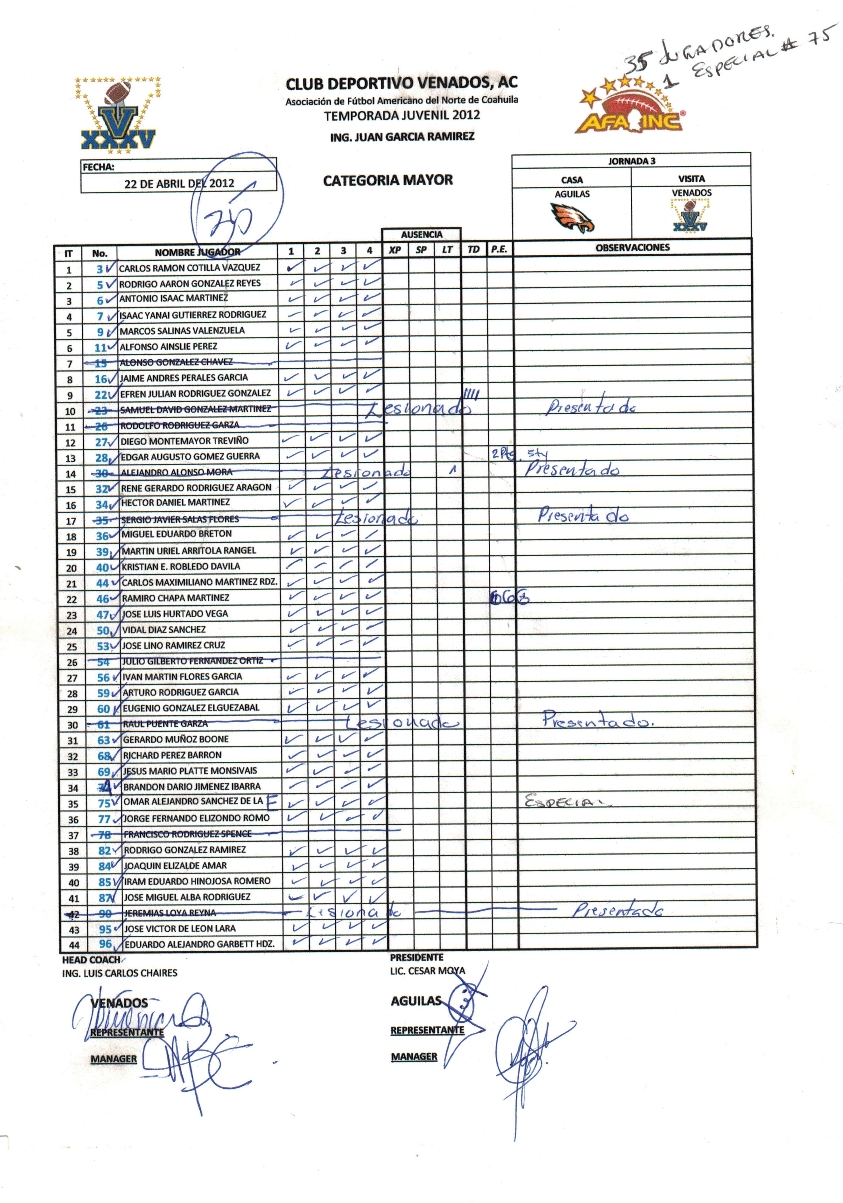 35 JUGADORES.
1 ESPECIAL # 75
CLUB DEPORTIVO VENADOS, AC
Asociación de Fútbol Americano del Norte de Coahuila
TEMPORADA JUVENIL 2012
ING. JUAN GARCIA RAMIREZ
V
XXXV
AFA INC
FECHA:
22 DE ABRIL DEL 2012
CATEGORIA MAYOR
JORNADA 3
CASA VISITA
AGUILAS VENADOS
V
XXXV
AUSENCIA
IT No. NOMBRE JUGADOR 1 2 3 4 XP SP LT TD P.E. OBSERVACIONES
1 3 CARLOS RAMON COTILLA VAZQUEZ
2 5 RODRIGO AARON GONZALEZ REYES
3 6 ANTONIO ISAAC MARTINEZ
4 7 ISAAC YANAI GUTIERREZ RODRIGUEZ
5 9 MARCOS SALINAS VALENZUELA
6 11 ALFONSO AINSLIE PEREZ
7 15 ALONSO GONZALEZ CHAVEZ
8 16 JAIME ANDRES PERALES GARCIA
9 22 EFREN JULIAN RODRIGUEZ GONZALEZ IIII
10 23 SAMUEL DAVID GONZALEZ MARTINEZ Lesionado Presentado
11 26 RODOLFO RODRIGUEZ GARZA
12 27 DIEGO MONTEMAYOR TREVIÑO
13 28 EDGAR AUGUSTO GOMEZ GUERRA
14 30 ALEJANDRO ALONSO MORA Lesionado 1 Presentado
15 32 RENE GERARDO RODRIGUEZ ARAGON
16 34 HECTOR DANIEL MARTINEZ
17 35 SERGIO JAVIER SALAS FLORES Lesionado Presentado
18 36 MIGUEL EDUARDO BRETON
19 39 MARTIN URIEL ARRITOLA RANGEL
20 40 KRISTIAN E. ROBLEDO DAVILA
21 44 CARLOS MAXIMILIANO MARTINEZ RDZ.
22 46 RAMIRO CHAPA MARTINEZ
23 47 JOSE LUIS HURTADO VEGA
24 50 VIDAL DIAZ SANCHEZ
25 53 JOSE LINO RAMIREZ CRUZ
26 54 JULIO GILBERTO FERNANDEZ ORTIZ
27 56 IVAN MARTIN FLORES GARCIA
28 59 ARTURO RODRIGUEZ GARCIA
29 60 EUGENIO GONZALEZ ELGUEZABAL
30 61 RAUL PUENTE GARZA Lesionado Presentado.
31 63 GERARDO MUÑOZ BOONE
32 68 RICHARD PEREZ BARRON
33 69 JESUS MARIO PLATTE MONSIVAIS
34 BRANDON DARIO JIMENEZ IBARRA
35 75 OMAR ALEJANDRO SANCHEZ DE LA E ESPECIAL
36 77 JORGE FERNANDO ELIZONDO ROMO
37 78 FRANCISCO RODRIGUEZ SPENCE
38 82 RODRIGO GONZALEZ RAMIREZ
39 84 JOAQUIN ELIZALDE AMAR
40 85 IRAM EDUARDO HINOJOSA ROMERO
41 87 JOSE MIGUEL ALBA RODRIGUEZ
42 90 JEREMIAS LOYA REYNA Lisionado Presentado
43 95 JOSE VICTOR DE LEON LARA
44 96 EDUARDO ALEJANDRO GARBETT HDZ.
HEAD COACH PRESIDENTE
ING. LUIS CARLOS CHAIRES LIC. CESAR MOYA
VENADOS AGUILAS
REPRESENTANTE REPRESENTANTE
MANAGER MANAGER